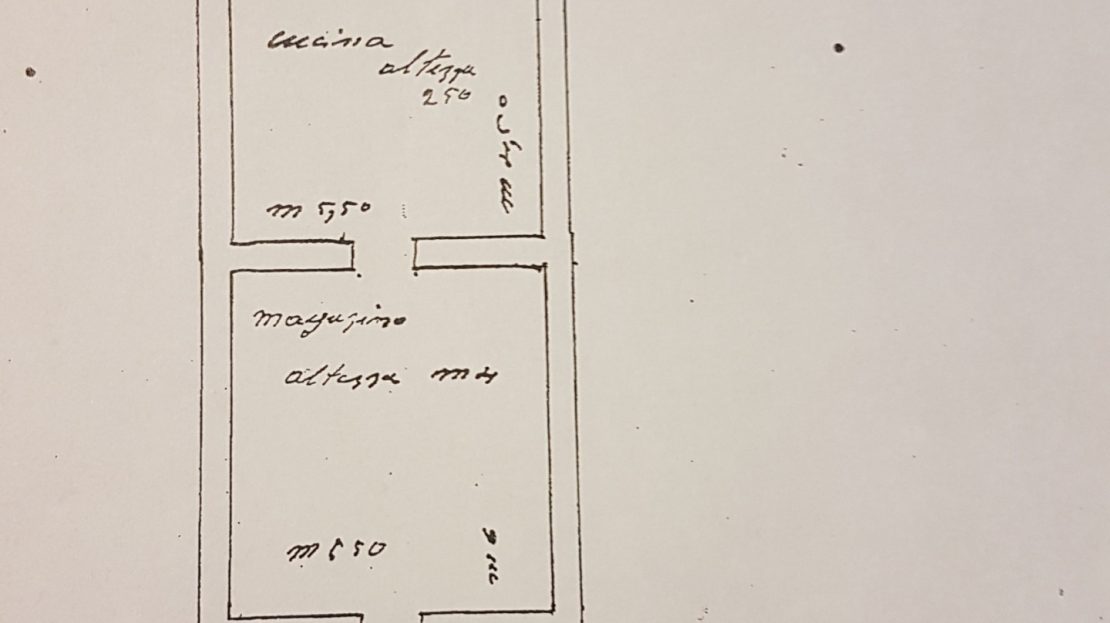 cucina
altezza
250
m 5,50
magazino
altezza m 4
m 5 50